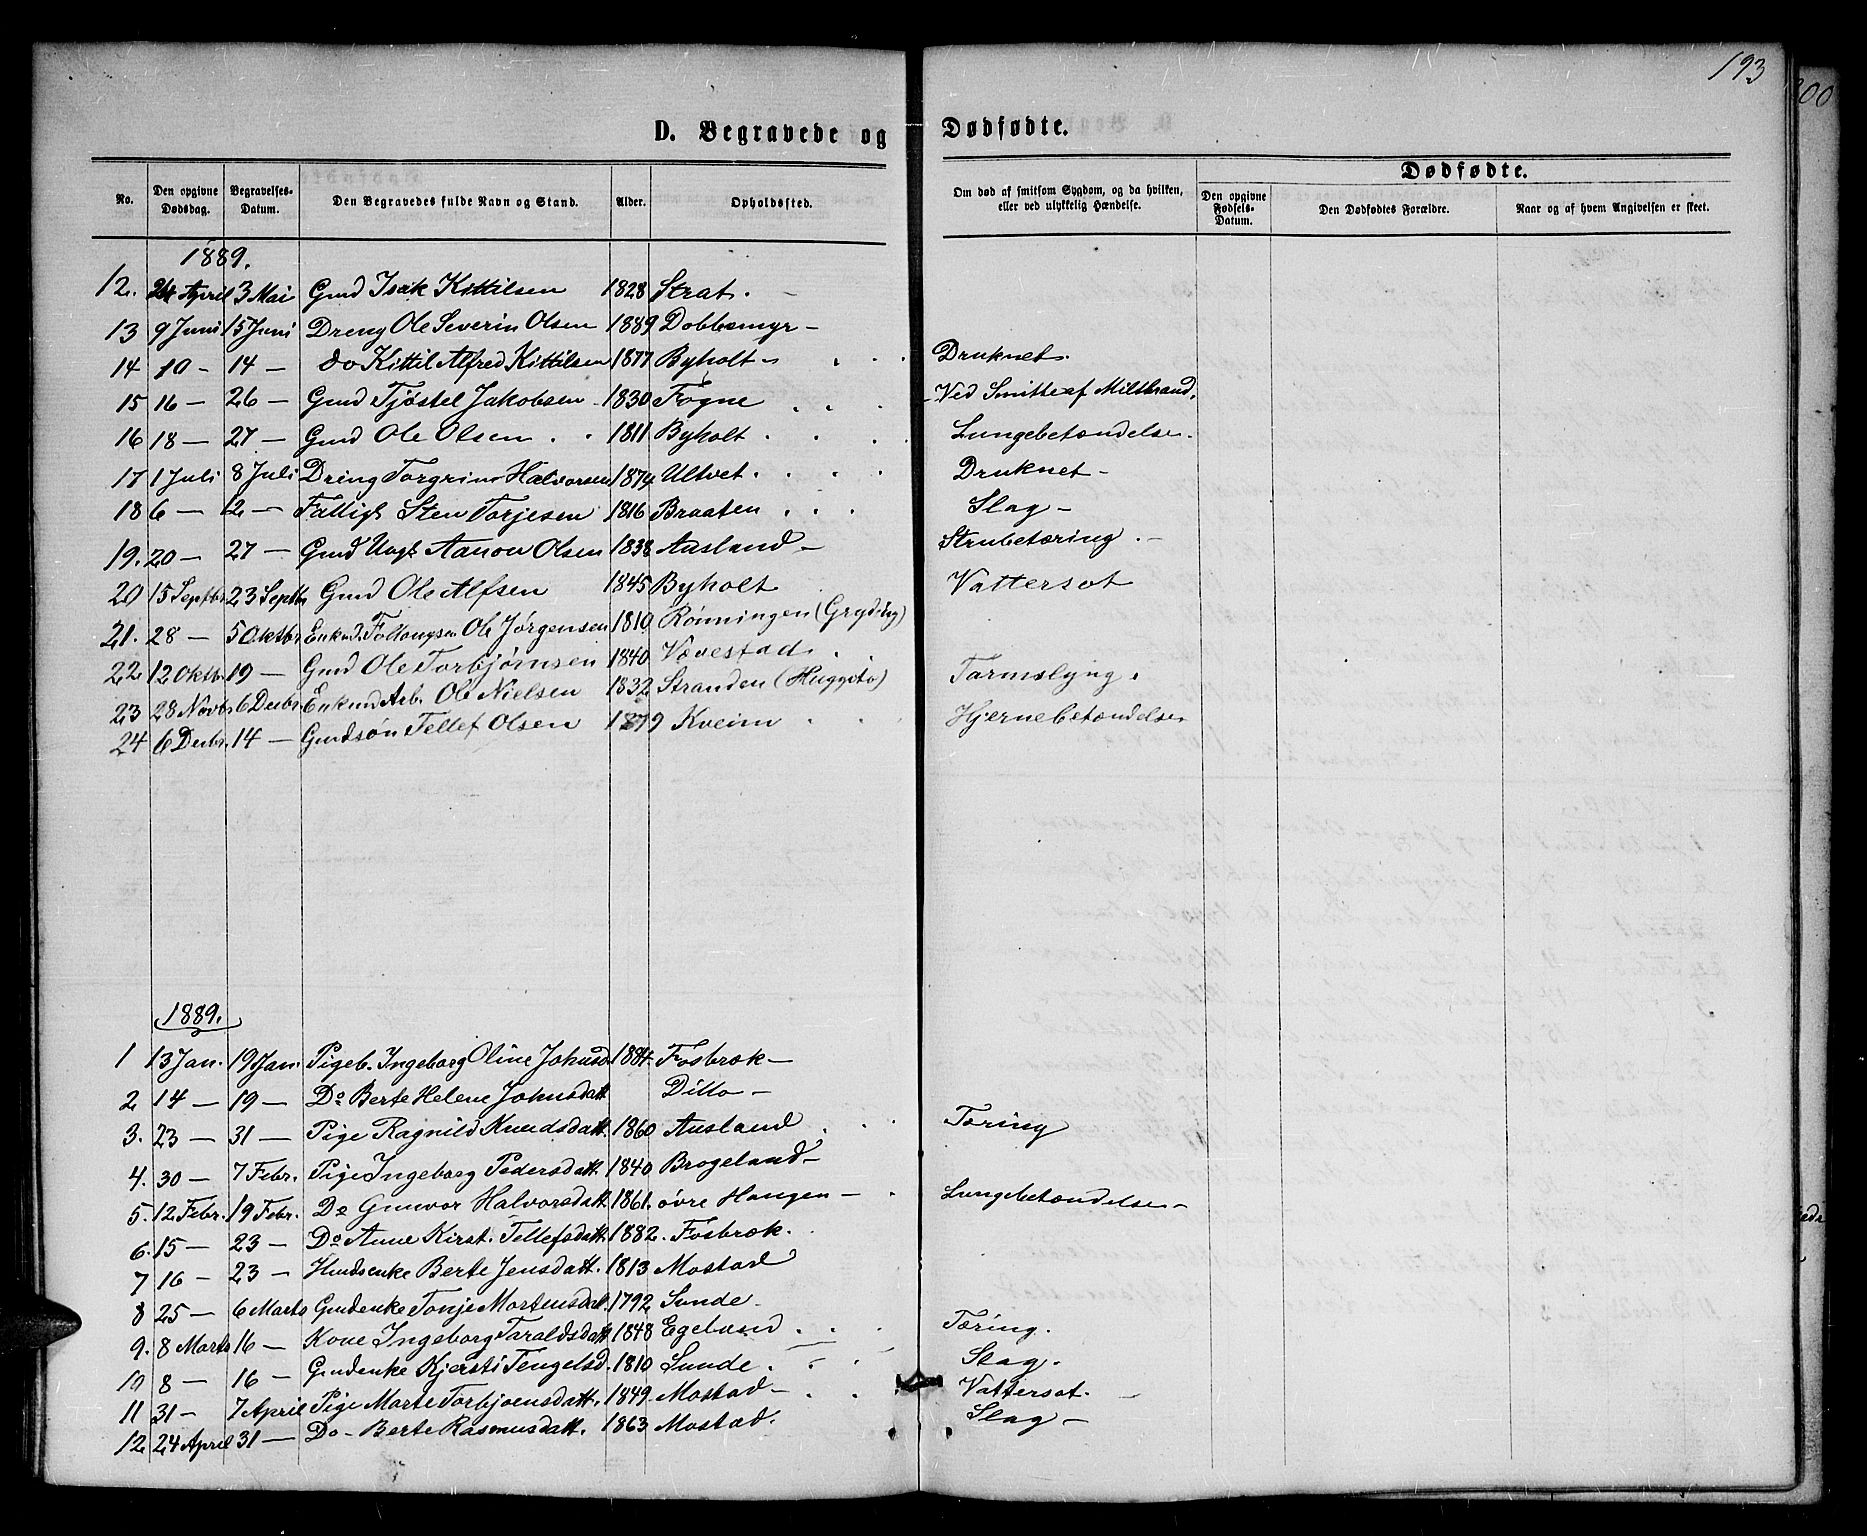 193
D. Begravede og Dødfødte.
Dødfødte.
No. | Den opgivne Dødsdag. | Begravelses-Datum. | Den Begravedes fulde Navn og Stand. | Alder. | Opholdssted. | Om død af smitsom Sygdom, og da hvilken, eller ved ulykkelig Hændelse. | Den opgivne Fødsels-Datum. | Den Dødfødtes Forældre. | Naar og af hvem Angivelsen er skeet.
1889.
12. 24 April 3 Mai Gmd Isak Kittilsen 1828 Strat.
13 9 Juni 15 Juni Dreng Ole Severin Olsen 1889 Dobbemyr -
14 10 - 14 - do Kittil Alfred Kittilsen 1877 Byholt - Druknet.
15 16 - 26 - Gmd Tjøstel Jakobsen 1830 Fogne Ved Smitte af Miltbrand.
16 18 - 27 - Gmd Ole Olsen 1811 Byholt Lungebetændelse.
17 1 Juli 8 Juli Dreng Torgrim Halvorsen 1874 Ultvet Druknet -
18 6 - 12 - Fattigl Sten Torjesen 1816 Braaten Slag -
19. 20 - 27 - Gmd Aanon Olsen 1838 Ausland - Strubetæring -
20 15 Septbr 23 Septbr Gmd Ole Alfsen 1845 Byholt Vattersot
21. 28 - 5 Oktbr Ole Jørgensen 1810 Rønningen
22 12 Oktbr 19 - Gmd Ole Torbjørnsen 1840 Vævestad Tarmslyng.
23 28 Novbr 6 Decbr Enkmd Arb. Ole Nielsen 1832 Stranden
24 6 Decbr. 14 - Gmdsøn Tellef Olsen 1879 Kveim Hjernebetændelse
1889.
1 13 Jan. 19 Jan. Pigeb. Ingeborg Oline Johnsd 1884 Fosbræk -
2 14 - 19 - Do Berte Helene Johnsdatt Ditto -
3. 23 - 31 - Pige Ragnild Knudsdatt. 1860 Ausland Tæring
4. 30 - 7 Febr. Pige Ingeborg Pedersdatt. 1840 Brogeland -
5. 12 Febr. 19 Febr. Do Gunvor Halvorsdatt. 1861. øvre Haugen - Lungebetændelse -
6. 15 - 23 - Do Anne Kirst. Tellefsdatt. 1882. Fosbræk.
7 16 - 23 - Husenke Berte Jensdatt. 1813 Mostad
8 25 - 6 Marts Gmdenke Tonje Mortensdat. 1792 Sunde -
9. 8 Marts 16 - Kone Ingeborg Taraldsdatt 1848 Egeland Tæring.
10 8 - 16 - Gmdenke Kjersti Tengelsd. 1810 Sunde. Slag.
11 31 - 7 April Pige Marte Torbjoensdatt. 1849. Mostad - Vattersot. -
12 24 April 31 - Do - Berte Rasmusdatt. 1863 Mostad. Slag -